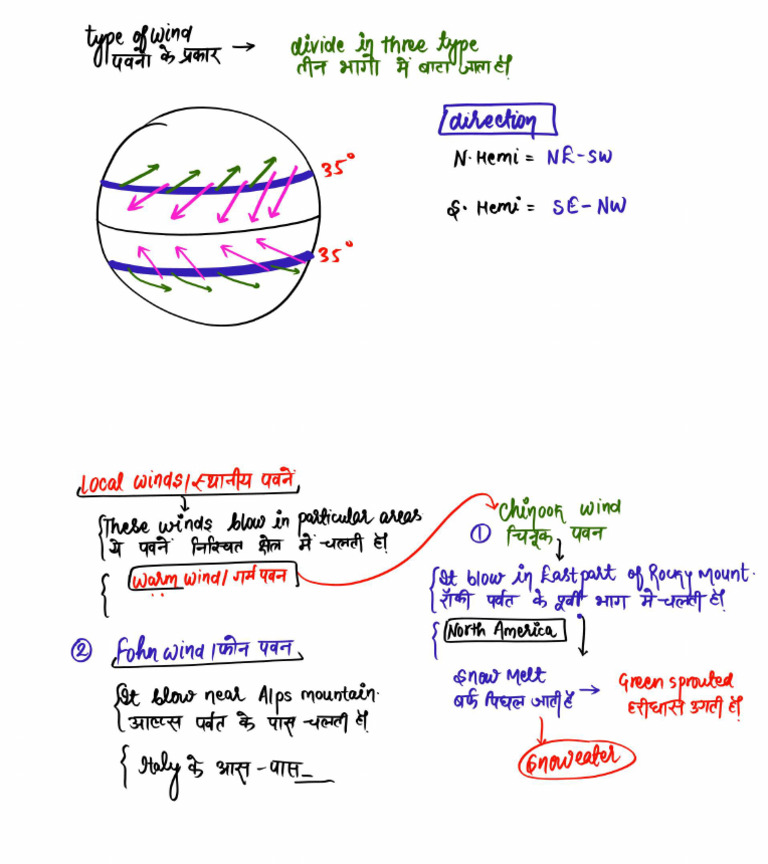 type of wind → divide in three type
पवनो के प्रकार तीन भागो में बाटा जाता हैं।
direction
35°
N. Hemi = NE-SW
S. Hemi = SE-NW
35°
Local winds/स्थानीय पवने
These winds blow in particular areas
ये पवने निश्चित क्षेत्र में चलती हैं।
warm wind/गर्म पवन
② Fohn wind/फोन पवन
It blow near Alps mountain.
आल्प्स पर्वत के पास चलती हैं।
Italy के आस-पास
Chinook wind
① चिनूक पवन
It blow in East part of Rocky Mount.
रॉकी पर्वत के पूर्वी भाग में चलती हैं।
North America
Snow Melt → Green sprouted
बर्फ पिघल जाती हैं हरीघास उगती हैं।
Snoweater